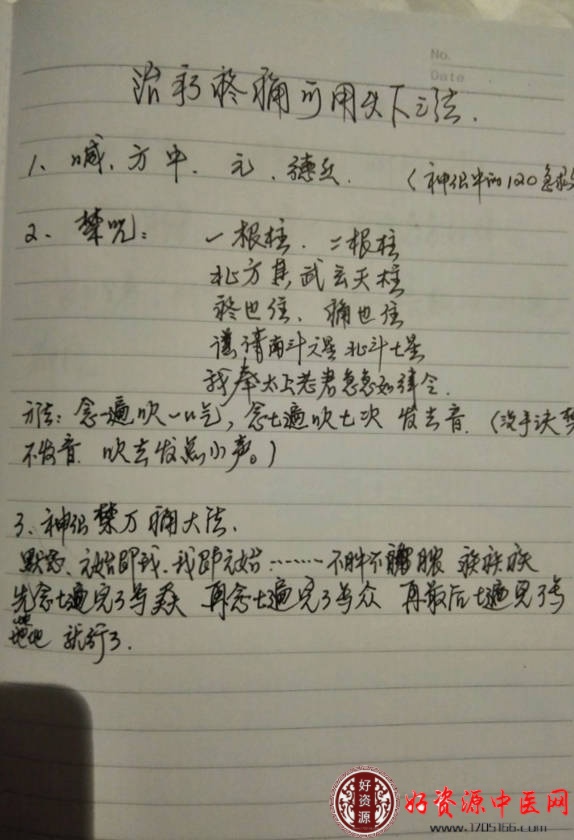 No.
Date
治疗疼痛可用以下之法.
1、喊、方中、元、德兵. (神针中的120急救
2、禁咒: 一根柱. 二根柱
北方真武玄天柱
疼也住、痛也住
谨请南斗六星北斗七星
我奉太上老君急急如律令.
方法:念一遍吹一口气,念七遍吹七次 发去音.(没手诀
不发音 吹去发点小声。)
3、神针禁万痛大法.
默念、元始即我、我即元始……不肿不 脓 疾疾疾
先念七遍完了与 再念七遍完了与众 再最后七遍完了与
就行了.
好资源
好资源中医网
www.1705166.com